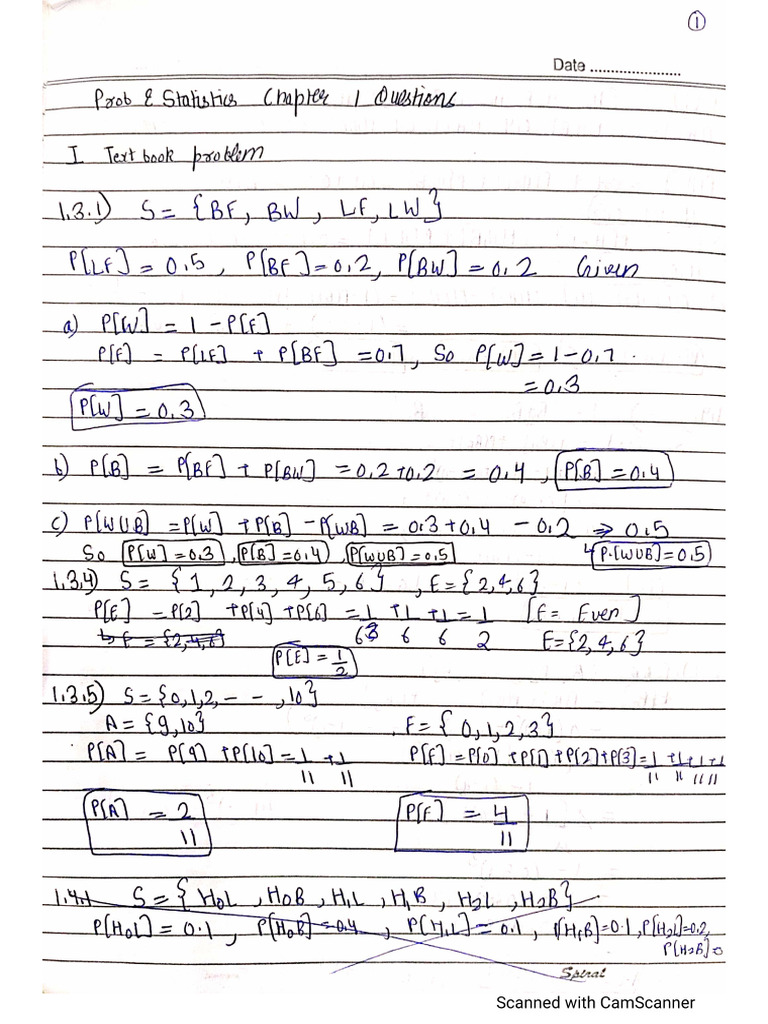 ①
Date ......................
Prob & Statistics Chapter 1 Questions
I Text book problem
1.3.1) S = {BF, BW, LF, LW}
P[LF] = 0.5, P[BF] = 0.2, P[BW] = 0.2 Given
a) P[W] = 1 - P[F]
P[F] = P[LF] + P[BF] = 0.7, So P[W] = 1 - 0.7
= 0.3
P[W] = 0.3
b) P[B] = P[BF] + P[BW] = 0.2 + 0.2 = 0.4, P[B] = 0.4
c) P[WUB] = P[W] + P[B] - P[WB] = 0.3 + 0.4 - 0.2 => 0.5
So P[W] = 0.3, P[B] = 0.4, P[WUB] = 0.5 P[WUB] = 0.5
1.3.4) S = {1, 2, 3, 4, 5, 6}, E = {2,4,6}
P[E] = P[2] + P[4] + P[6] = 1/6 + 1/6 + 1/6 = 1/2 [E = Even]
E = {2,4,6} E = {2,4,6}
P[E] = 1/2
1.3.5) S = {0,1,2, - - -, 10}
A = {9,10} F = {0,1,2,3}
P[A] = P[9] + P[10] = 1/11 + 1/11 P[F] = P[0] + P[1] + P[2] + P[3] = 1/11 + 1/11 + 1/11 + 1/11
P[A] = 2/11 P[F] = 4/11
1.4.1 S = {H0L, H0B, H1L, H1B, H2L, H2B}
P[H0L] = 0.1, P[H0B] = 0.4, P[H1L] = 0.1, P[H1B] = 0.1, P[H2L] = 0.2,
P[H2B] =
Spiral
Scanned with CamScanner